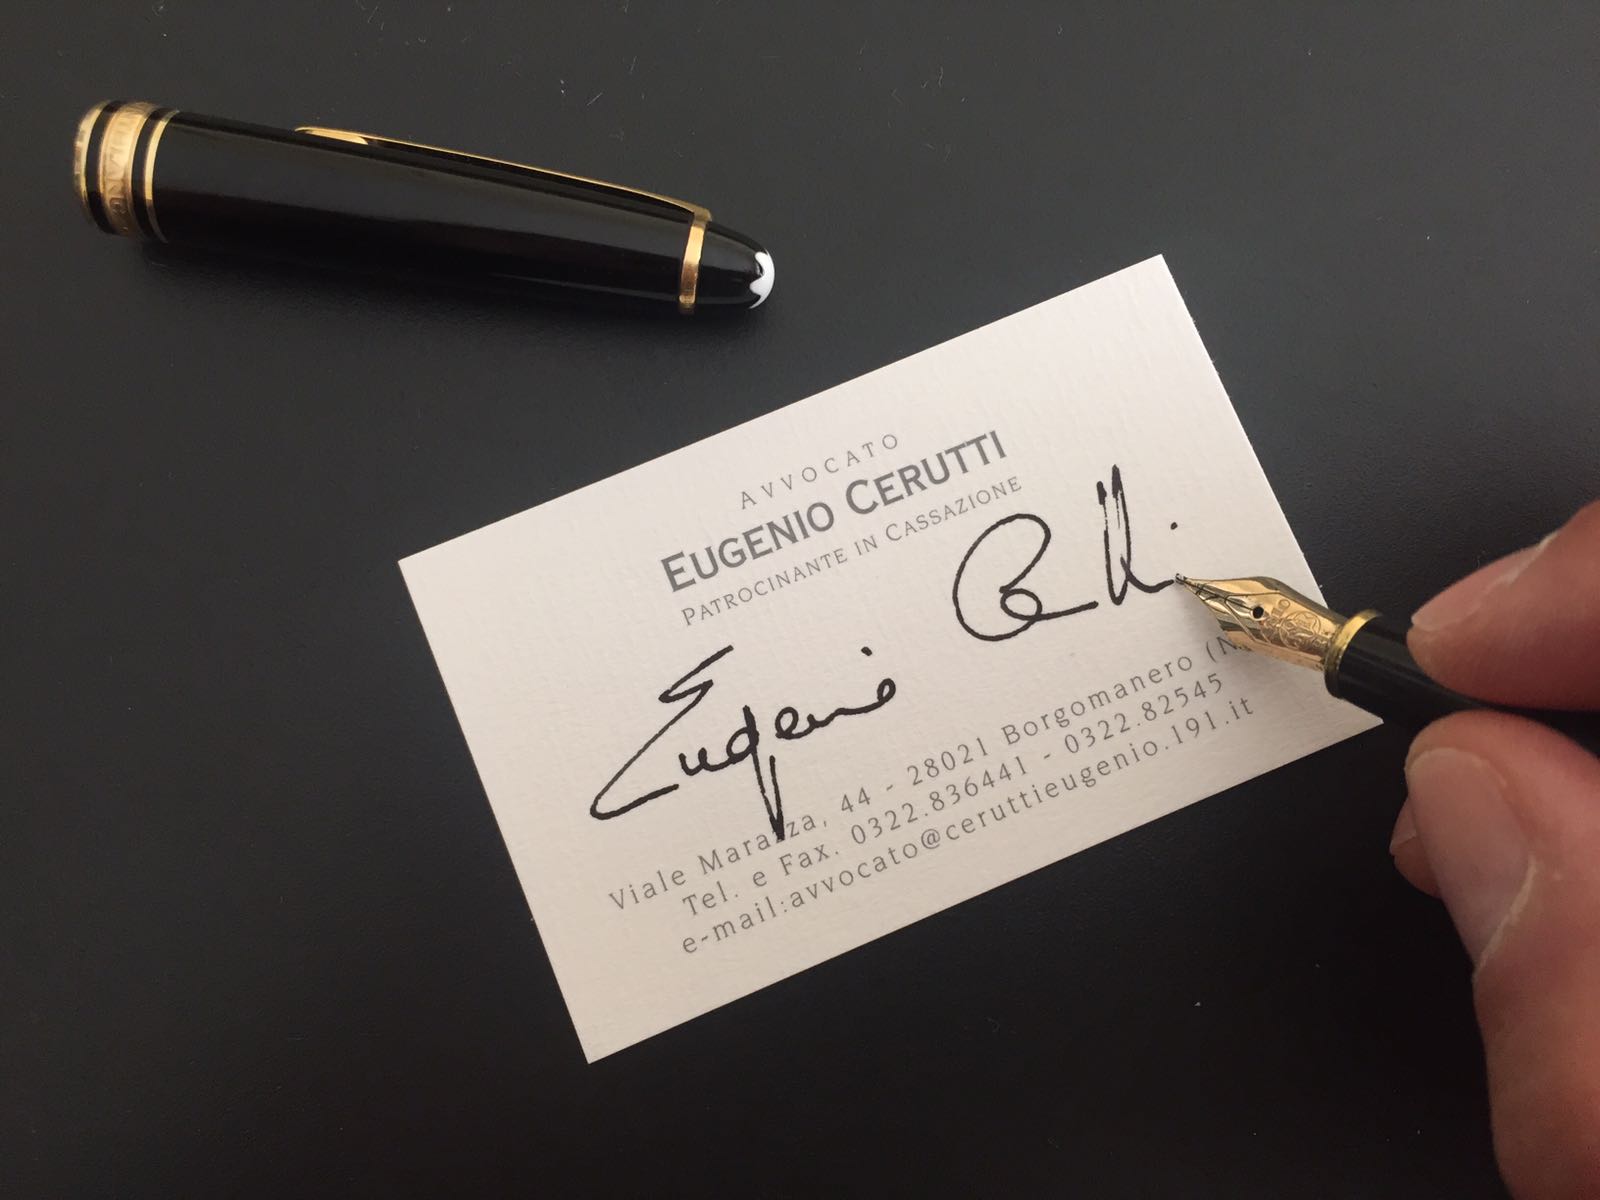 AVVOCATO
EUGENIO CERUTTI
PATROCINANTE IN CASSAZIONE
Eugenio Cerutti
Viale Marazza, 44 - 28021 Borgomanero (N
Tel. e Fax. 0322.836441 - 0322.82545
e-mail:avvocato@ceruttieugenio.191.it